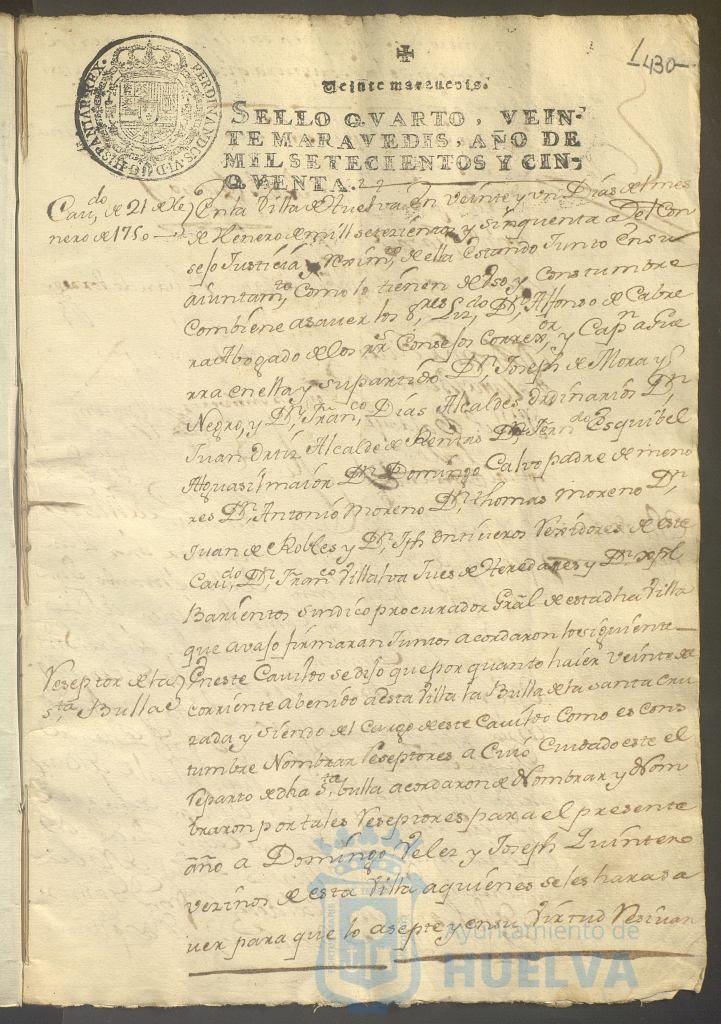 FERDINANDUS·VI·D·G·HISPANIAR·REX·
1430
Veinte marauedis.
SELLO QVARTO, VEIN-
TE MARAVEDIS, AÑO DE
MIL SETECIENTOS Y CIN-
QVENTA.
Cau.do de 21 de He
nero de 1750
En la Villa de Huelva en veinte y un Dias del mes
de Henero de mill setecientos y sinquenta a. Del Con
sejo Justicia y Reximto. de ella estando Junto en su
aiuntamto. Como lo tienen de Uso y Constumbre
Combiene a sauer los Sres. Lizdo. Dn. Alfonso de Cabre
ra Abogado de los Rr. Consejos Correxor. y Capn. a Gue
rra en esta y su partido Dn. Joseph de Mora y
Negro, y Dn. Franco. Dias Alcaldes ordinarios Dn.
Juan Ortiz Alcalde de Rentas Dn. Ferndo. Esquibel
Alguasil maior Dn. Domingo Calvo padre de meno
res Dn. Antonio Moreno Dn. Thomas Moreno Dn.
Juan de Robles y Dn. Jph Ontiveros Rexidores de este
Cauido. Dn. Franco. Villalva Jues de Heredades y Dn. Xpl
Barientos sindico procurador Gral de esta dha Villa
que avajo firmaran Juntos acordaron lo siguiente
Reseptor de la
Sta. Bulla
En este Cavildo se dijo que por quanto haier veinte de
corriente a benido a esta Villa la Bulla de la santa Cru
zada y siendo del Cargo de este Cavildo Como es cons
tumbre Nombrar Reseptores a Cuio Cuidado este el
Reparto de dha Sta. bulla acordaron de Nombrar y Nom
braron por tales Reseptores para el presente
año a Domingo Velez y Joseph Quintero
vezinos de esta Villa a quienes se les hara sa
uer para que lo asepte y en su Virtud Resivan
Ayuntamiento de
HUELVA